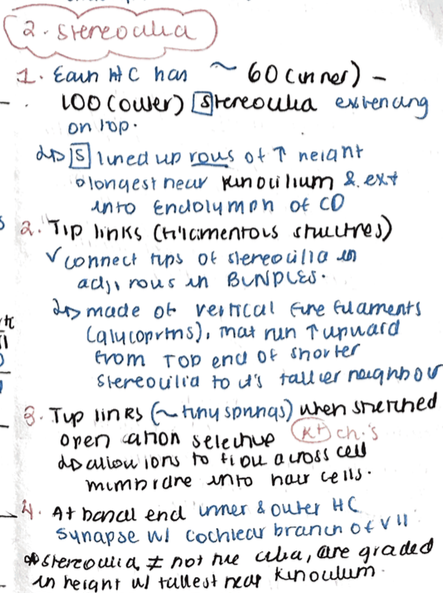 2. Stereocilia
1. Each HC has ~ 60 (inner) –
100 (outer) [S]tereocilia extending
on top.
↳ [S] lined up rows of ↑ height
◦ longest near kinocilium & ext
into Endolymph of CD
2. Tip links (filamentous structures)
✓ connect tips of stereocilia in
adj. rows in BUNDLES.
↳ made of vertical fine filaments
(glycoprtns), that run ↑ upward
from TOP end of shorter
stereocilia to it's taller neighbour
3. Tip links (~ tiny springs) when stretched
open cation selective K+ ch.s
↳ allow ions to flow across cell
membrane into hair cells.
4. At basal end inner & outer HC
synapse w/ cochlear branch of VII
* stereocilia ≠ not true cilia, are graded
in height w/ tallest near kinocilium.